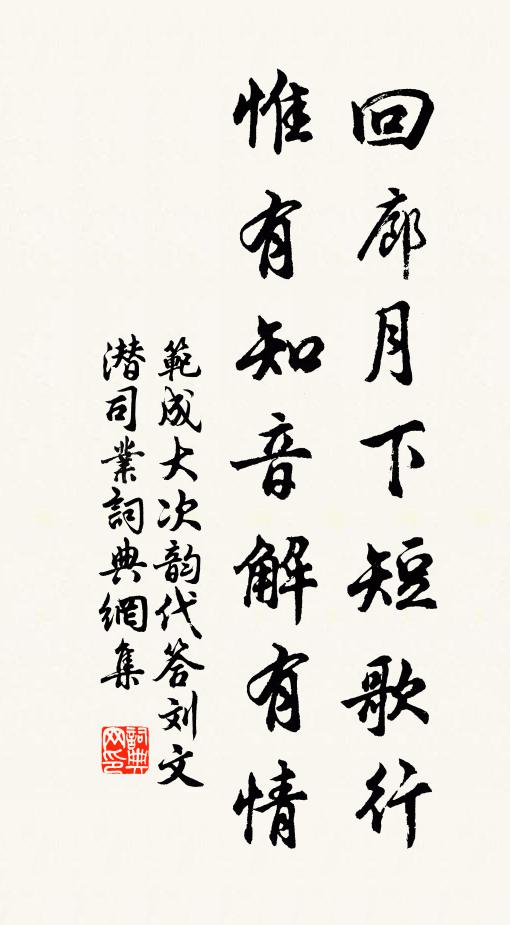 回廊月下短歌行
惟有知音解有情
範成大次韵代答刘文
潜司業詞典網集
詞典
网印